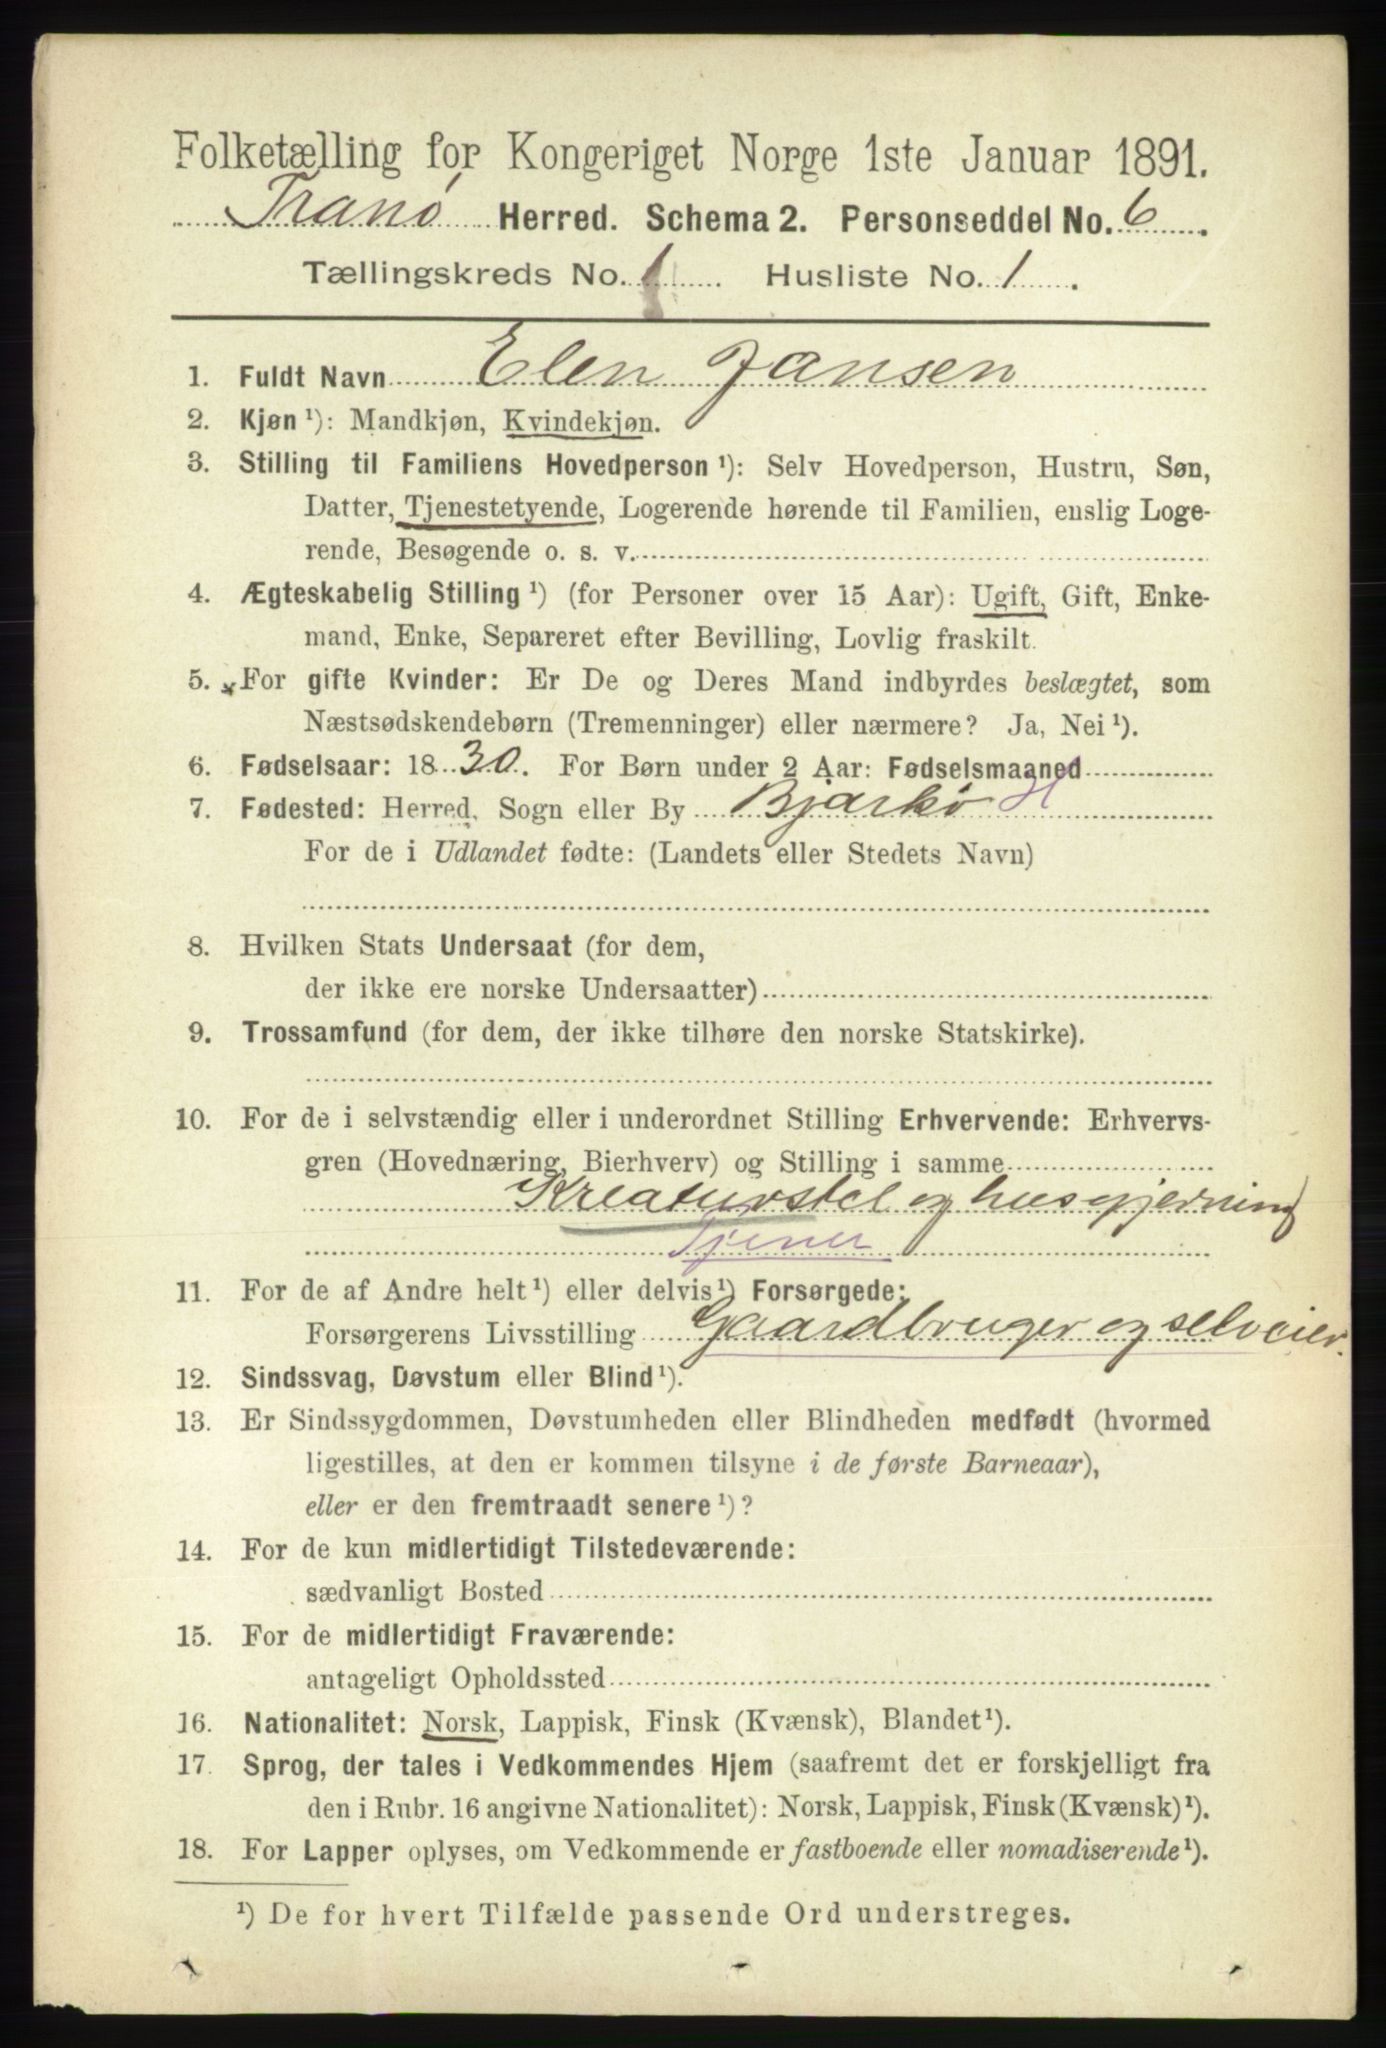 Folketælling for Kongeriget Norge 1ste Januar 1891.
Tranø Herred. Schema 2. Personseddel No. 6.
Tællingskreds No. 1 Husliste No. 1.
1. Fuldt Navn Elen Jansen
2. Kjøn ¹): Mandkjøn, Kvindekjøn.
3. Stilling til Familiens Hovedperson ¹): Selv Hovedperson, Hustru, Søn,
Datter, Tjenestetyende, Logerende hørende til Familien, enslig Loge-
rende, Besøgende o. s. v.
4. Ægteskabelig Stilling ¹) (for Personer over 15 Aar): Ugift, Gift, Enke-
mand, Enke, Separeret efter Bevilling, Lovlig fraskilt.
5. For gifte Kvinder: Er De og Deres Mand indbyrdes beslægtet, som
Næstsødskendebørn (Tremenninger) eller nærmere? Ja, Nei ¹).
6. Fødselsaar: 1830. For Børn under 2 Aar: Fødselsmaaned
7. Fødested: Herred, Sogn eller By Bjarkø H
For de i Udlandet fødte: (Landets eller Stedets Navn)
8. Hvilken Stats Undersaat (for dem,
der ikke ere norske Undersaatter)
9. Trossamfund (for dem, der ikke tilhøre den norske Statskirke).
10. For de i selvstændig eller i underordnet Stilling Erhvervende: Erhvervs-
gren (Hovednæring, Bierhverv) og Stilling i samme
Kreaturstel og husgjerning
Tjener
11. For de af Andre helt ¹) eller delvis ¹) Forsørgede:
Forsørgerens Livsstilling Gaardbruger og selveier.
12. Sindssvag, Døvstum eller Blind ¹).
13. Er Sindssygdommen, Døvstumheden eller Blindheden medfødt (hvormed
ligestilles, at den er kommen tilsyne i de første Barneaar),
eller er den fremtraadt senere ¹)?
14. For de kun midlertidigt Tilstedeværende:
sædvanligt Bosted
15. For de midlertidigt Fraværende:
antageligt Opholdssted
16. Nationalitet: Norsk, Lappisk, Finsk (Kvænsk), Blandet ¹).
17. Sprog, der tales i Vedkommendes Hjem (saafremt det er forskjelligt fra
den i Rubr. 16 angivne Nationalitet): Norsk, Lappisk, Finsk (Kvænsk) ¹).
18. For Lapper oplyses, om Vedkommende er fastboende eller nomadiserende ¹).
¹) De for hvert Tilfælde passende Ord understreges.